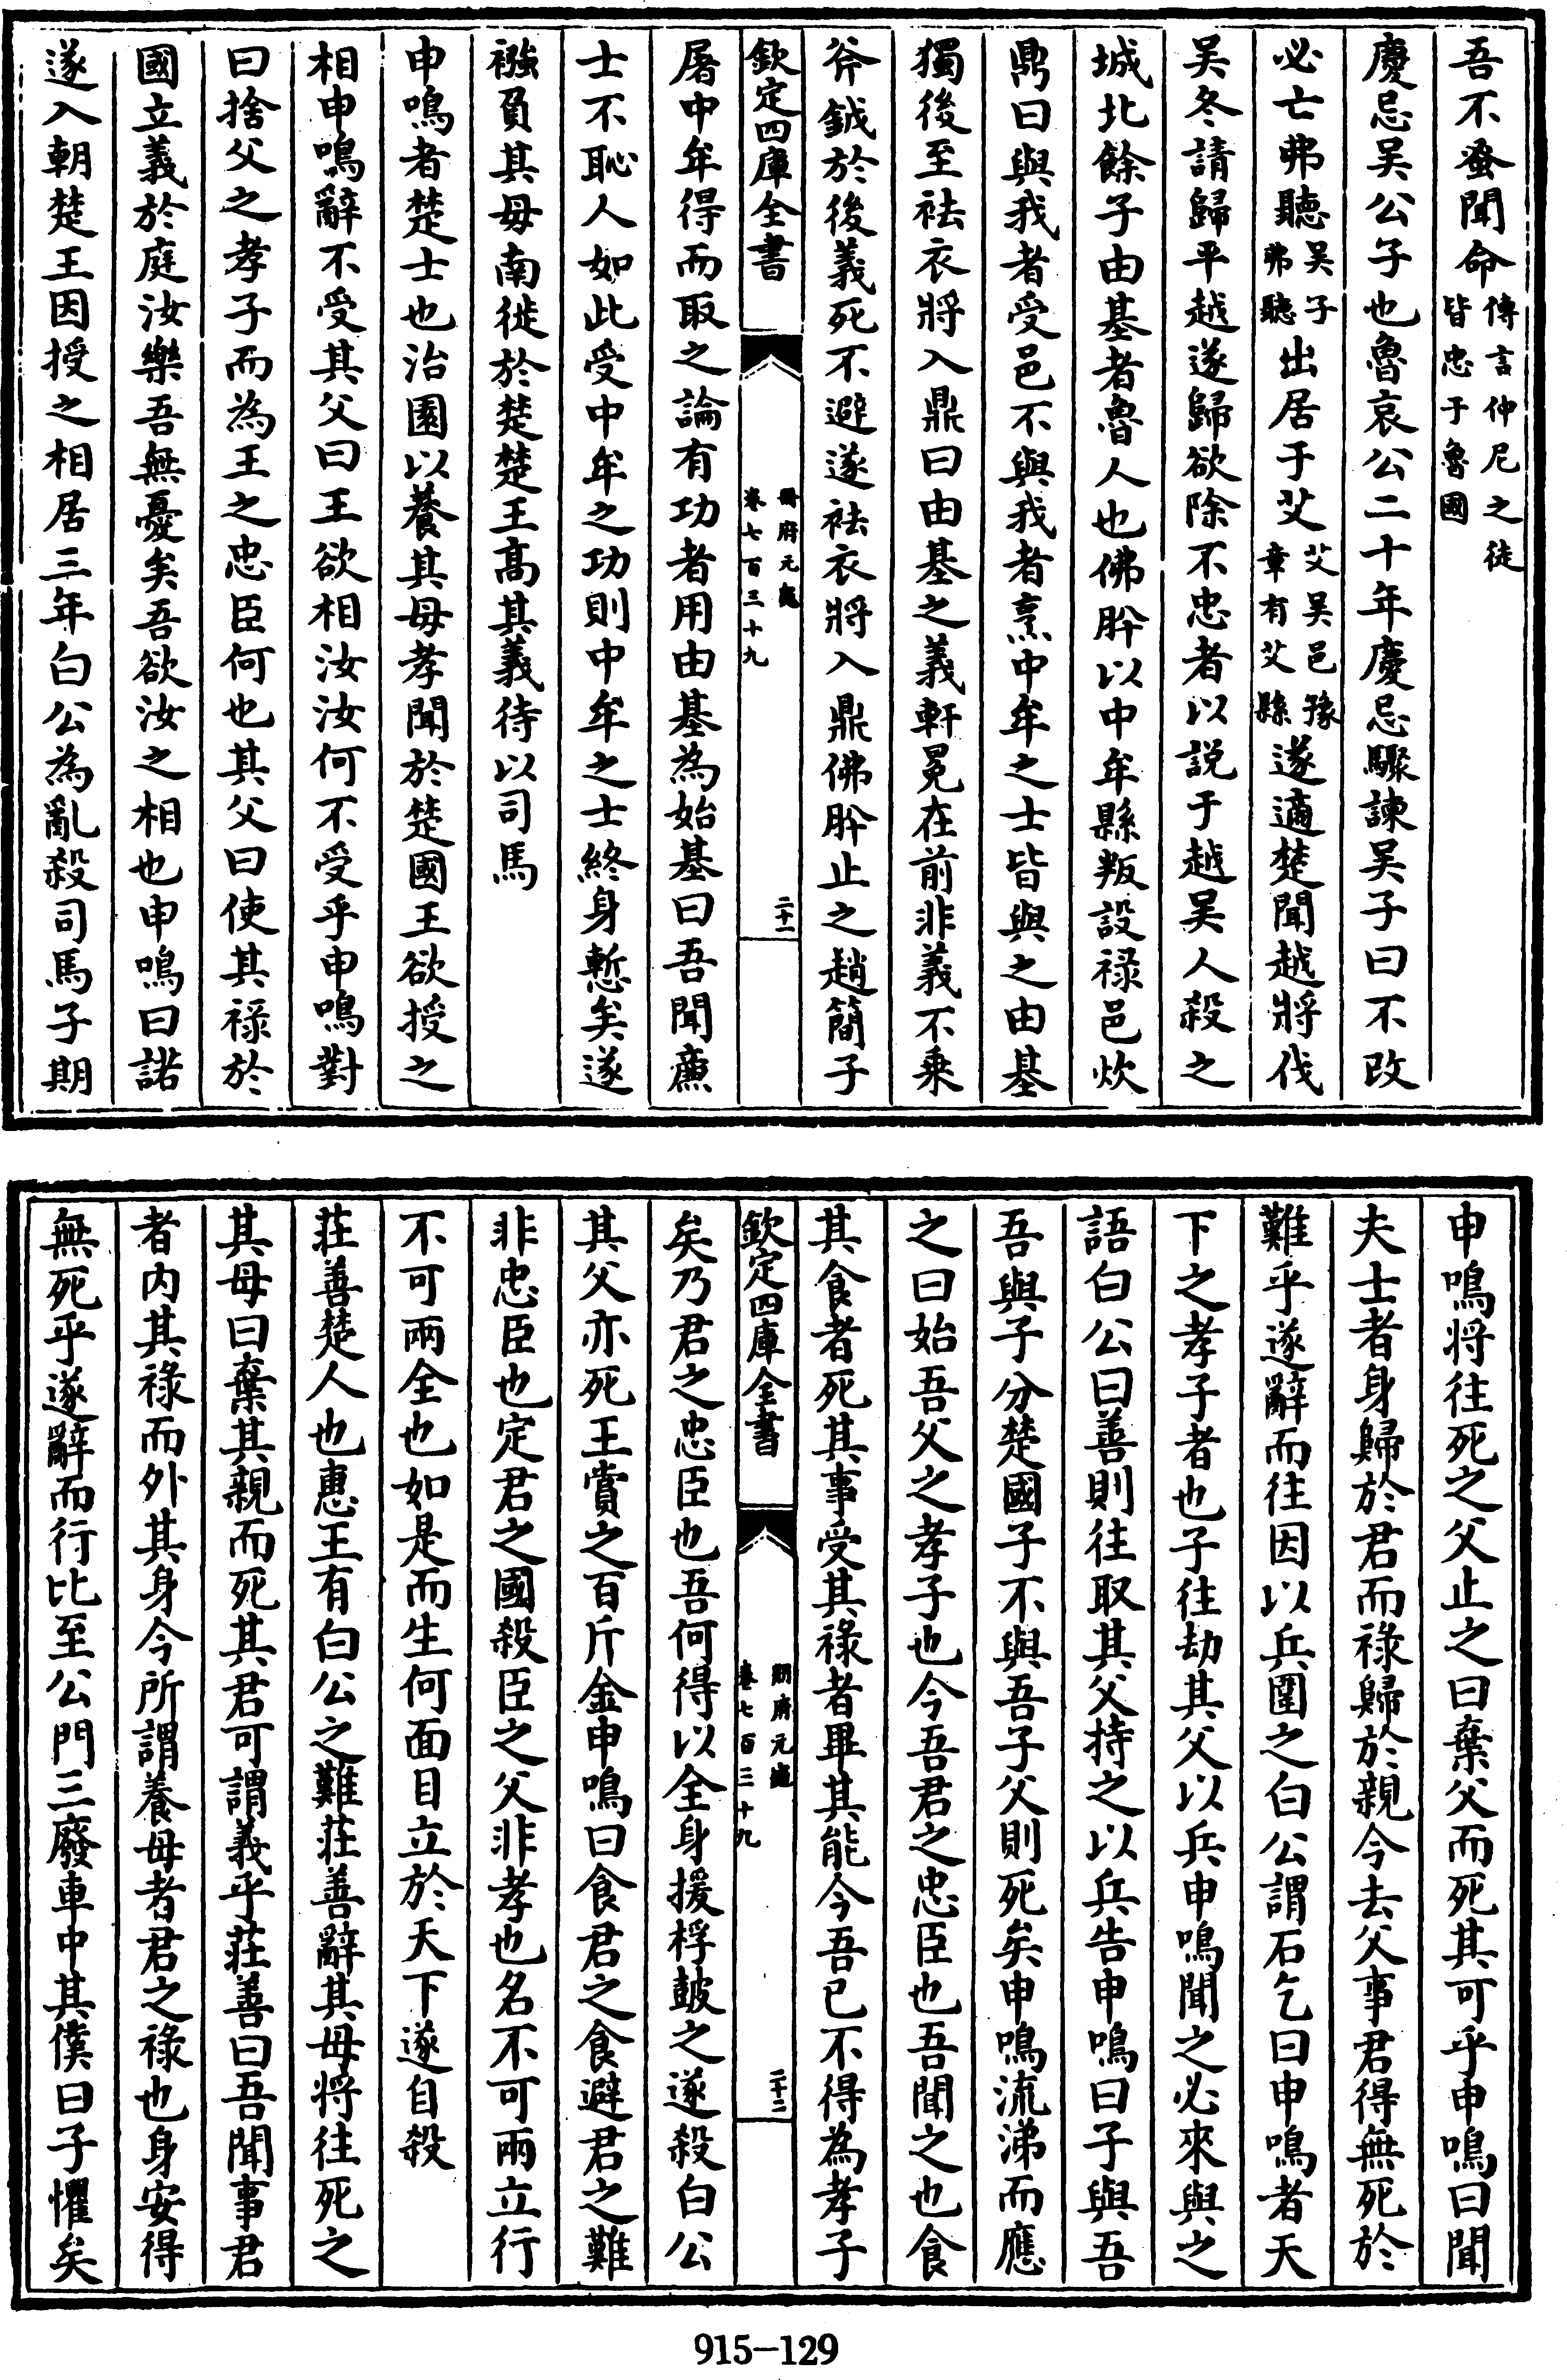 吾不蚤聞命傳言仲尼之徒皆忠于魯國
慶忌吳公子也魯哀公二十年慶忌驟諫吳子曰不改
必亡弗聽吳子弗聽出居于艾艾吳邑豫章有艾縣遂適楚聞越將伐
吳冬請歸平越遂歸欲除不忠者以説于越吳人殺之
城北餘子由基者魯人也佛肸以中牟縣叛設禄邑炊
鼎曰與我者受邑不與我者烹中牟之士皆與之由基
獨後至袪衣將入鼎曰由基之義軒冕在前非義不乗
斧鉞於後義死不避遂袪衣將入鼎佛肸止之趙簡子
欽定四庫全書
冊府元龜
卷七百三十九
二十一
屠中牟得而取之論有功者用由基為始基曰吾聞廉
士不恥人如此受中牟之功則中牟之士終身慙矣遂
襁負其母南徙於楚楚王高其義待以司馬
申鳴者楚士也治園以養其母孝聞於楚國王欲授之
相申鳴辭不受其父曰王欲相汝汝何不受乎申鳴對
曰捨父之孝子而為王之忠臣何也其父曰使其禄於
國立義於庭汝樂吾無憂矣吾欲汝之相也申鳴曰諾
遂入朝楚王因授之相居三年白公為亂殺司馬子期
申鳴將往死之父止之曰棄父而死其可乎申鳴曰聞
夫士者身歸於君而禄歸於親今去父事君得無死於
難乎遂辭而往因以兵圍之白公謂石乞曰申鳴者天
下之孝子者也子往劫其父以兵申鳴聞之必來與之
語白公曰善則往取其父持之以兵告申鳴曰子與吾
吾與子分楚國子不與吾子父則死矣申鳴流涕而應
之曰始吾父之孝子也今吾君之忠臣也吾聞之也食
其食者死其事受其禄者畢其能今吾已不得為孝子
欽定四庫全書
冊府元龜
卷七百三十九
二十二
矣乃君之忠臣也吾何得以全身援桴鼓之遂殺白公
其父亦死王賞之百斤金申鳴曰食君之食避君之難
非忠臣也定君之國殺臣之父非孝也名不可兩立行
不可兩全也如是而生何面目立於天下遂自殺
莊善楚人也惠王有白公之難莊善辭其母將往死之
其母曰棄其親而死其君可謂義乎莊善曰吾聞事君
者内其禄而外其身今所謂養母者君之禄也身安得
無死乎遂辭而行比至公門三廢車中其僕曰子懼矣
915-129